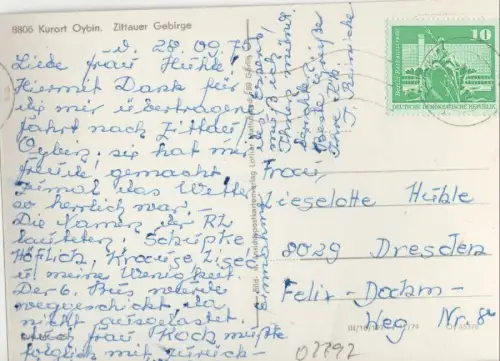 8806 Kurort Oybin. Zittauer Gebirge
d. 28.09.75
Liebe Frau Hühle!
Hiermit Dank für
die mir übertragene
Fahrt nach Zittau/
Oybin; sie hat mir
Freude gemacht
zumal das Wetter
so herrlich war.
Die Namen der RL
lauteten: Schüpke
Höflich, Krause
u. meine Wenigkeit.
Der 6. Bus wurde
weggeschickt da
nicht ausgelastet.
Frau Koch mußte
folglich mit zurück-
muß ich
Ihnen mündl.
berichten
Beste Grüße
Ihre
10
DEUTSCHE DEMOKRATISCHE REPUBLIK
Frau
Lieselotte Hühle
8029 Dresden
Felix-Dahm-
Weg Nr. 8
02792